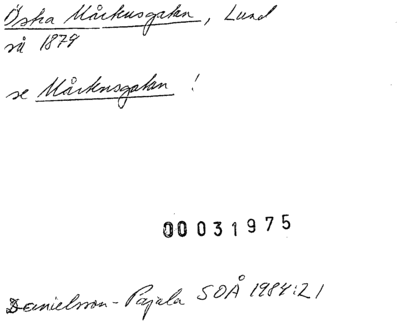 Östra Mårtensgatan, Lund
så 1879
se Mårtensgatan !
00031975
Danielsson-Pajala SOÅ 1984:21